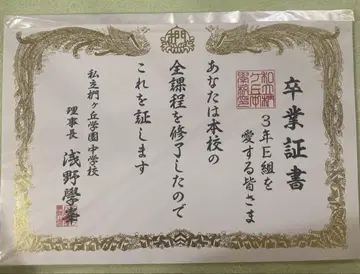 椚
卒業証書
3年E組を
愛する皆さま
あなたは本校の
全課程を修了したので
これを証します
私立椚ヶ丘学園中学校
理事長 浅野學峯